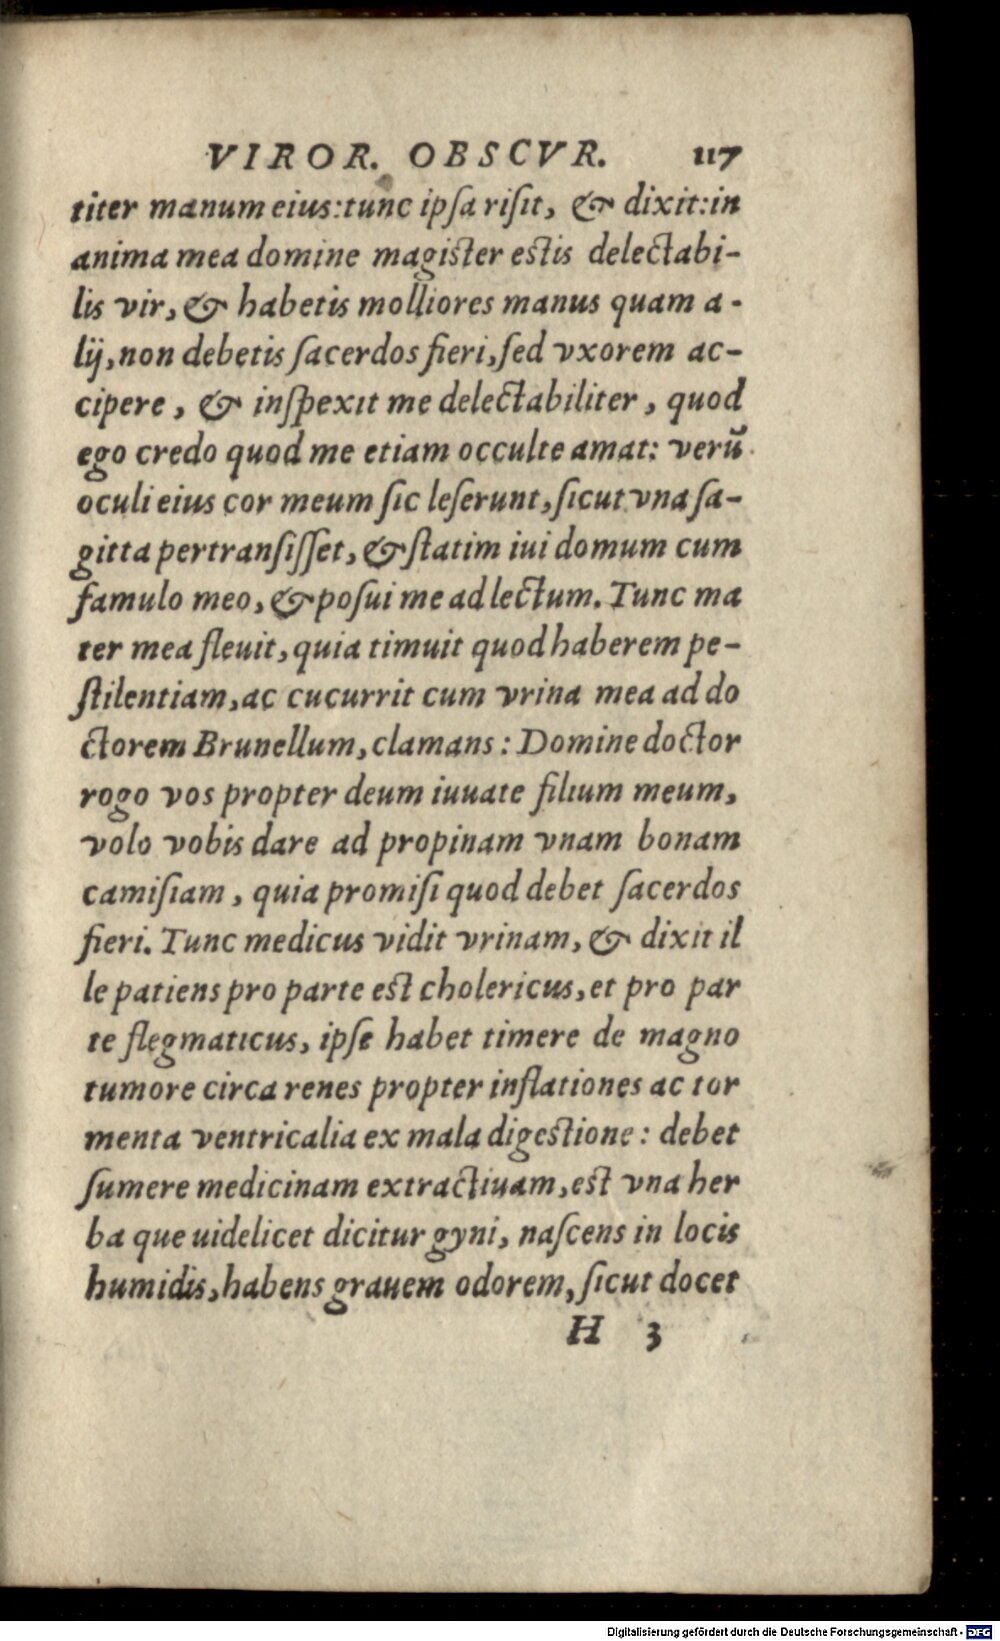 VIROR. OBSCVR. 117
titer manum eius:tunc ipſa riſit, & dixit:in
anima mea domine magiſter eſtis delectabi-
lis vir, & habetis molliores manus quam a-
lij, non debetis ſacerdos fieri, ſed vxorem ac-
cipere, & inſpexit me delectabiliter, quod
ego credo quod me etiam occulte amat: verū
oculi eius cor meum ſic leſerunt, ſicut vna ſa-
gitta pertranſiſſet, & ſtatim iui domum cum
famulo meo, & poſui me ad lectum. Tunc ma
ter mea fleuit, quia timuit quod haberem pe-
ſtilentiam, ac cucurrit cum vrina mea ad do
ctorem Brunellum, clamans: Domine doctor
rogo vos propter deum iuuate filium meum,
volo vobis dare ad propinam vnam bonam
camiſiam, quia promiſi quod debet ſacerdos
fieri. Tunc medicus vidit vrinam, & dixit il
le patiens pro parte eſt cholericus, et pro par
te flegmaticus, ipſe habet timere de magno
tumore circa renes propter inflationes ac tor
menta ventricalia ex mala digeſtione: debet
ſumere medicinam extractiuam, eſt vna her
ba que uidelicet dicitur gyni, naſcens in locis
humidis, habens grauem odorem, ſicut docet
H 3
Digitalisierung gefördert durch die Deutsche Forschungsgemeinschaft - DFG